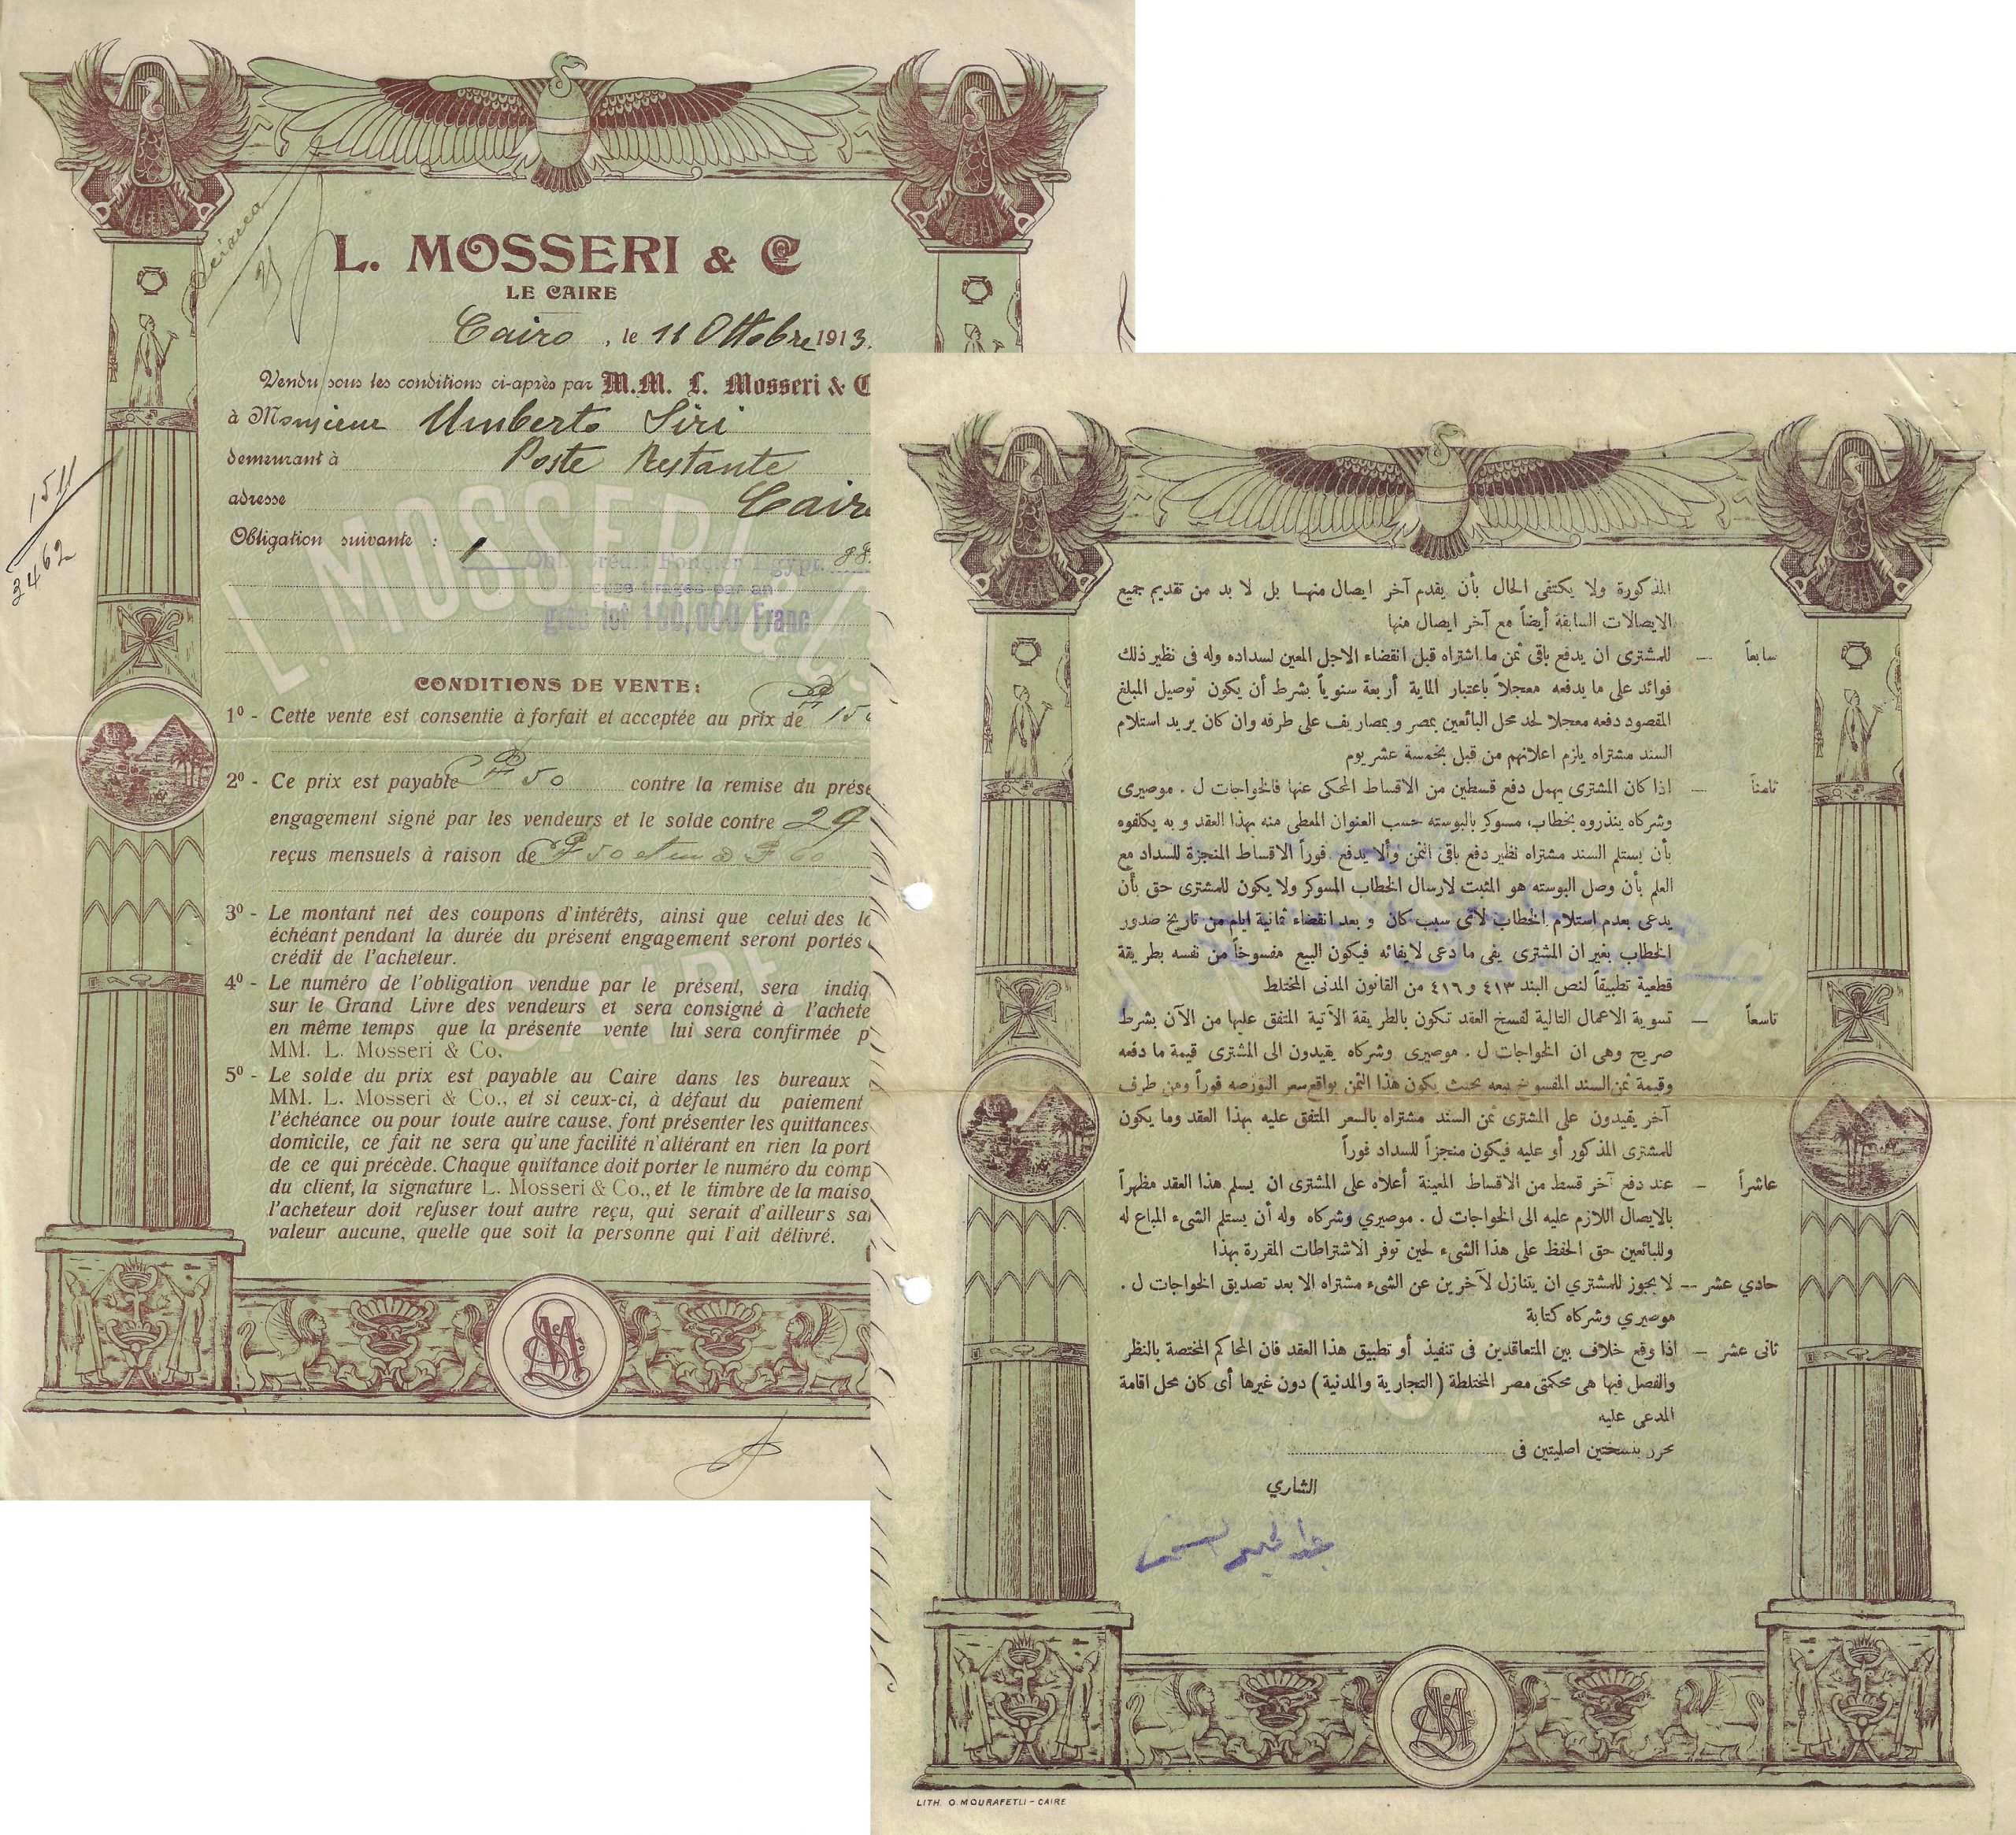 L. MOSSERI & C
LE CAIRE
Cairo, le 11 Ottobre 1913.
Vendu sous les conditions ci-après par M.M. L. Mosseri & C
à Monsieur Umberto Siri
demeurant à Poste Restante
adresse
Obligation suivante : 1
Obl. Crédit Foncier Egypt.
gros lot 100,000 Franc
1511
3462
L. MOSSERI &
CONDITIONS DE VENTE:
1º - Cette vente est consentie à forfait et acceptée au prix de
2º - Ce prix est payable 50 contre la remise du prése
engagement signé par les vendeurs et le solde contre 29
reçus mensuels à raison de
3º - Le montant net des coupons d'intérêts, ainsi que celui des lo
échéant pendant la durée du présent engagement seront portés
crédit de l'acheteur.
4º - Le numéro de l'obligation vendue par le présent, sera indiq
sur le Grand Livre des vendeurs et sera consigné à l'achete
en même temps que la présente vente lui sera confirmée p
MM. L. Mosseri & Co.
5º - Le solde du prix est payable au Caire dans les bureaux
MM. L. Mosseri & Co., et si ceux-ci, à défaut du paiement
l'échéance ou pour toute autre cause, font présenter les quittances
domicile, ce fait ne sera qu'une facilité n'altérant en rien la port
de ce qui précède. Chaque quittance doit porter le numéro du comp
du client, la signature L. Mosseri & Co., et le timbre de la maiso
l'acheteur doit refuser tout autre reçu, qui serait d'ailleurs sa
valeur aucune, quelle que soit la personne qui l'ait délivré.
المذكورة ولا يكتفى الحال بأن يقدم آخر ايصال منها بل لا بد من تقديم جميع
الايصالات السابقة أيضاً مع آخر ايصال منها
سابعاً — للمشترى ان يدفع باقى ثمن ما اشتراه قبل انقضاء الاجل المعين لسداده وله فى نظير ذلك
فوائد على ما يدفعه معجلاً باعتبار الماية أربعة سنوياً بشرط أن يكون توصيل المبلغ
المقصود دفعه معجلا لحد محل البائعين بمصر وبمصاريف على طرفه وان كان يريد استلام
السند مشتراه يلزم اعلانهم من قبل بخمسة عشر يوم
ثامناً — اذا كان المشترى يهمل دفع قسطين من الاقساط المحكى عنها فالخواجات ل . موصيرى
وشركاه ينذروه بخطاب مسوكر بالبوسته حسب العنوان المعطى منه بهذا العقد وبه يكلفوه
بأن يستلم السند مشتراه نظير دفع باقى الثمن وألا يدفع فوراً الاقساط المنجزة للسداد مع
العلم بأن وصل البوسته هو المثبت لارسال الخطاب المسوكر ولا يكون للمشترى حق بأن
يدعى بعدم استلام الخطاب لأى سبب كان وبعد انقضاء ثمانية ايام من تاريخ صدور
الخطاب بغير ان المشترى يفى ما دعى لايفائه فيكون البيع مفسوخاً من نفسه بطريقة
قطعية تطبيقاً لنص البند ٤١٣ و ٤١٦ من القانون المدنى المختلط
تاسعاً — تسوية الاعمال التالية لفسخ العقد تكون بالطريقة الآتية المتفق عليها من الآن بشرط
صريح وهى ان الخواجات ل . موصيرى وشركاه يقيدون الى المشترى قيمة ما دفعه
وقيمة ثمن السند المفسوخ بيعه بحيث يكون هذا الثمن بواقع سعر البورصه فوراً ومن طرف
آخر يقيدون على المشترى ثمن السند مشتراه بالسعر المتفق عليه بهذا العقد وما يكون
للمشترى المذكور أو عليه فيكون منجزاً للسداد فوراً
عاشراً — عند دفع آخر قسط من الاقساط المعينة أعلاه على المشترى ان يسلم هذا العقد مظهراً
بالايصال اللازم عليه الى الخواجات ل . موصيري وشركاه وله أن يستلم الشىء المباع له
وللبائعين حق الحفظ على هذا الشىء لحين توفر الاشتراطات المقررة بهذا
حادي عشر — لا يجوز للمشتري ان يتنازل لآخرين عن الشىء مشتراه الا بعد تصديق الخواجات ل .
موصيري وشركاه كتابة
ثانى عشر — اذا وقع خلاف بين المتعاقدين فى تنفيذ أو تطبيق هذا العقد فان المحاكم المختصة بالنظر
والفصل فيها هى محكمتى مصر المختلطة ( التجارية والمدنية ) دون غيرها أى كان محل اقامة
المدعى عليه
تحرر بنسختين اصليتين فى
الشاري
LITH. O. MOURAFETLI - CAIRE